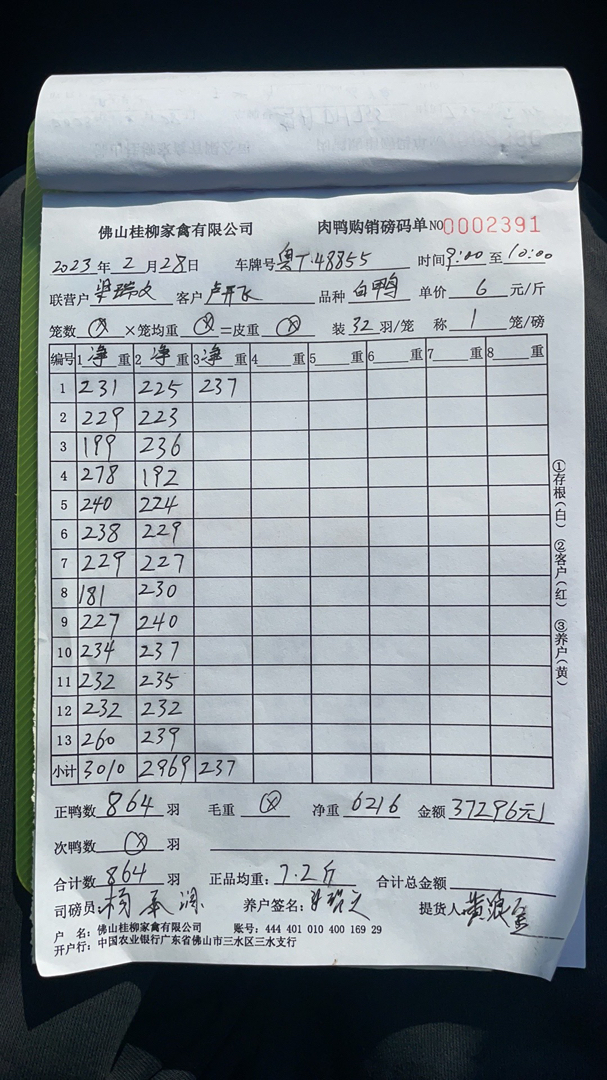 佛山桂柳家禽有限公司 肉鸭购销磅码单 NO0002391
2023年2月28日 车牌号粤T·48855 时间9:00至10:00
联营户梁瑞文 客户卢开飞 品种白鸭 单价6元/斤
笼数⊗×笼均重⊗=皮重⊗ 装32羽/笼 称1笼/磅
编号 1净重 2净重 3净重 4重 5重 6重 7重 8重
1 231 225 237
2 229 223
3 199 236
4 278 192
5 240 224
6 238 229
7 229 227
8 181 230
9 227 240
10 234 237
11 232 235
12 232 232
13 260 239
小计 3010 2969 237
正鸭数864羽 毛重⊗ 净重6216 金额37296元
次鸭数⊗羽
合计数864羽 正品均重:7.2斤 合计总金额
司磅员: 养户签名:梁瑞文 提货人:
户 名:佛山桂柳家禽有限公司 账号:444 401 010 400 169 29
开户行:中国农业银行广东省佛山市三水区三水支行
①存根(白) ②客户(红) ③养户(黄)